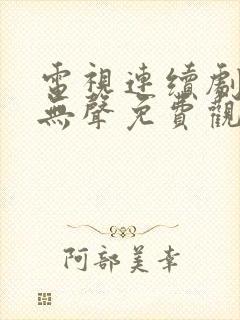 電視連續劇
無聲免費觀
阿部美幸